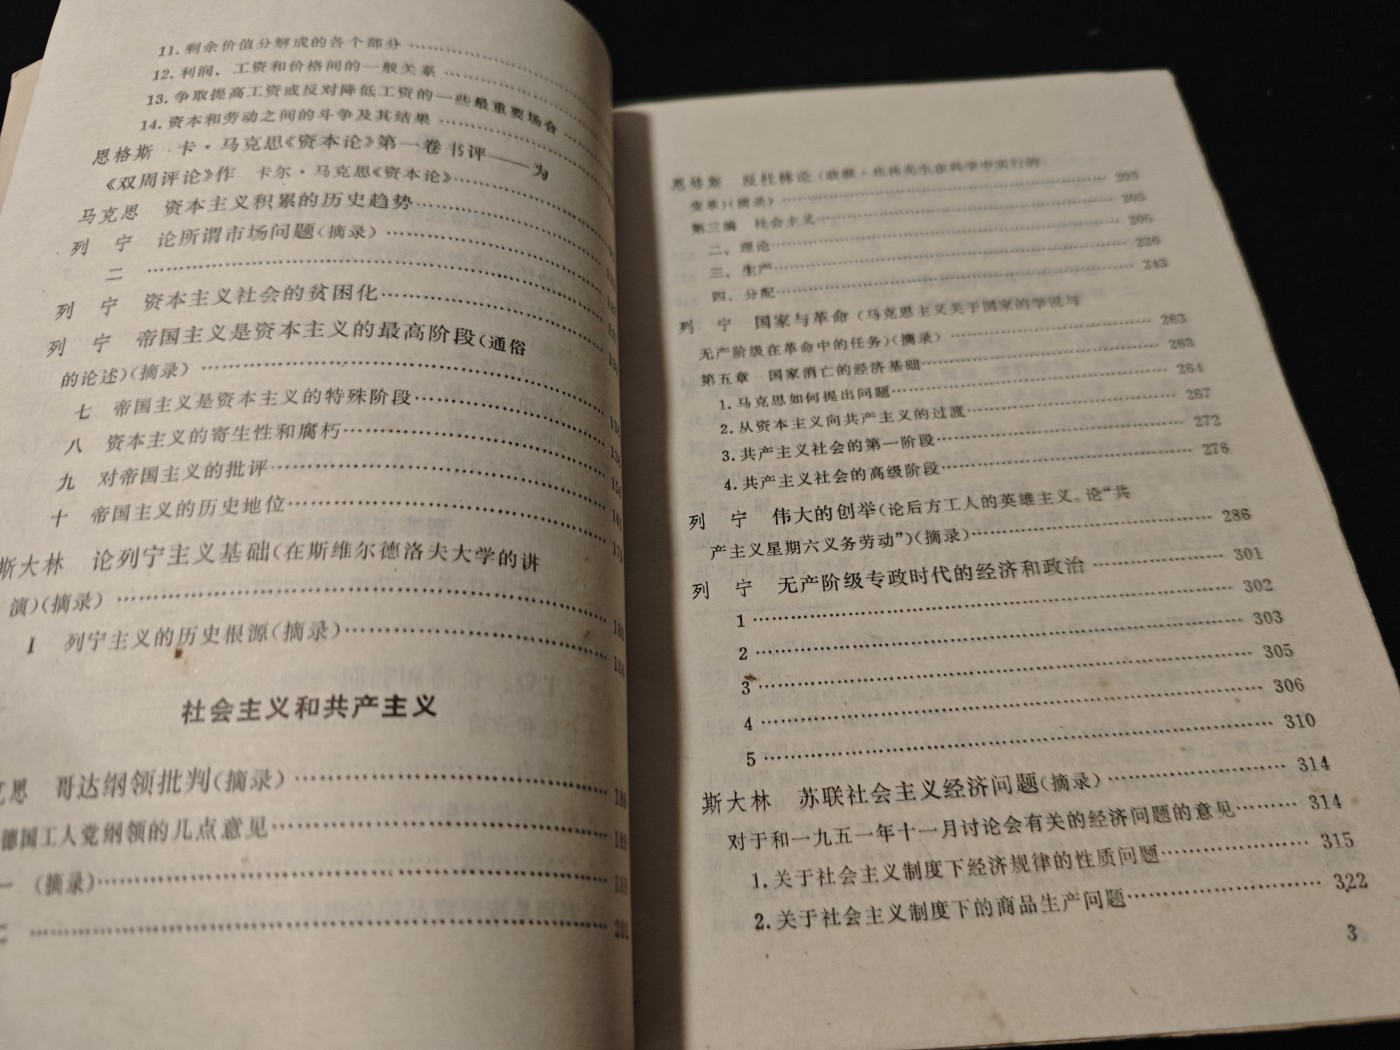 11.剩余价值分解成的各个部分
12.利润、工资和价格间的一般关系
13.争取提高工资或反对降低工资的一些最重要场合
14.资本和劳动之间的斗争及其结果
恩格斯 卡·马克思《资本论》第一卷书评——为
《双周评论》作 卡尔·马克思《资本论》
马克思 资本主义积累的历史趋势
列 宁 论所谓市场问题(摘录)
二
列 宁 资本主义社会的贫困化
列 宁 帝国主义是资本主义的最高阶段(通俗
的论述)(摘录)
七 帝国主义是资本主义的特殊阶段
八 资本主义的寄生性和腐朽
九 对帝国主义的批评
十 帝国主义的历史地位
斯大林 论列宁主义基础(在斯维尔德洛夫大学的讲
演)(摘录)
I 列宁主义的历史根源(摘录)
社会主义和共产主义
克思 哥达纲领批判(摘录)……189
德国工人党纲领的几点意见……189
一 (摘录)……189
二……201
恩格斯 反杜林论(欧根·杜林先生在科学中实行的
变革)(摘录)……205
第三编 社会主义……205
二、理论……205
三、生产……226
四、分配……243
列 宁 国家与革命(马克思主义关于国家的学说与
无产阶级在革命中的任务)(摘录)……263
第五章 国家消亡的经济基础……263
1.马克思如何提出问题……264
2.从资本主义向共产主义的过渡……267
3.共产主义社会的第一阶段……272
4.共产主义社会的高级阶段……276
列 宁 伟大的创举(论后方工人的英雄主义。论“共
产主义星期六义务劳动”)(摘录)……286
列 宁 无产阶级专政时代的经济和政治……301
1……302
2……303
3……305
4……306
5……310
斯大林 苏联社会主义经济问题(摘录)……314
对于和一九五一年十一月讨论会有关的经济问题的意见……314
1.关于社会主义制度下经济规律的性质问题……315
2.关于社会主义制度下的商品生产问题……322
3